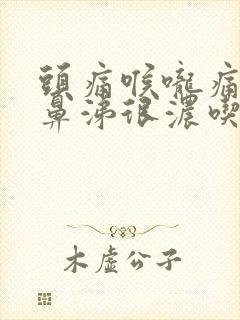 頭痛喉嚨痛
鼻涕很濃喫
木虛公子